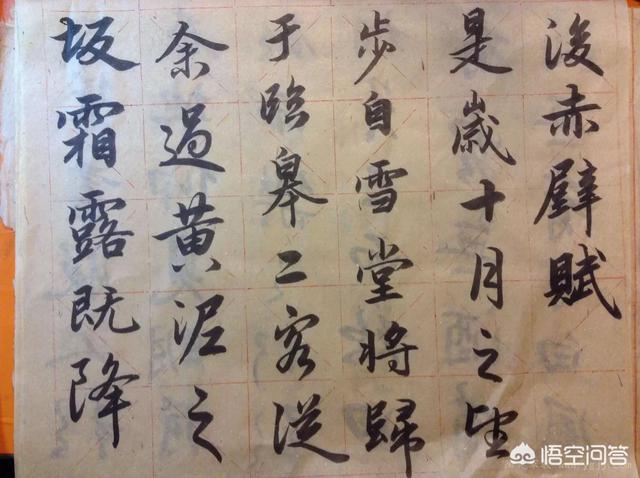 後赤壁賦
是歲十月之望
步自雪堂將歸
于臨皋二客從
余過黃泥之
坂霜露既降
悟空问答